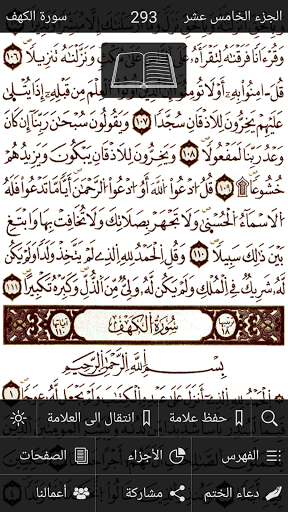 الجزء الخامس عشر 293 سورة الكهف
وَقُرْءَانًا فَرَقْنَٰهُ لِتَقْرَأَهُۥ عَلَى وَنَزَّلْنَٰهُ تَنزِيلًا ١٠٦
قُلْ ءَامِنُوا۟ بِهِۦٓ أَوْ لَا تُؤْمِنُوٓا۟ ٱلْعِلْمَ مِن قَبْلِهِۦٓ إِذَا يُتْلَىٰ
عَلَيْهِمْ يَخِرُّونَ لِلْأَذْقَانِ سُجَّدًا ١٠٧ وَيَقُولُونَ سُبْحَٰنَ رَبِّنَآ إِن كَانَ
وَعْدُ رَبِّنَا لَمَفْعُولًا ١٠٨ وَيَخِرُّونَ لِلْأَذْقَانِ يَبْكُونَ وَيَزِيدُهُمْ
خُشُوعًا ١٠٩ قُلِ ٱدْعُوا۟ ٱللَّهَ أَوِ ٱدْعُوا۟ ٱلرَّحْمَٰنَ أَيًّا مَّا تَدْعُوا۟ فَلَهُ
ٱلْأَسْمَآءُ ٱلْحُسْنَىٰ وَلَا تَجْهَرْ بِصَلَاتِكَ وَلَا تُخَافِتْ بِهَا وَٱبْتَغِ
بَيْنَ ذَٰلِكَ سَبِيلًا ١١٠ وَقُلِ ٱلْحَمْدُ لِلَّهِ ٱلَّذِى لَمْ يَتَّخِذْ وَلَدًا وَلَمْ يَكُن
لَّهُۥ شَرِيكٌ فِى ٱلْمُلْكِ وَلَمْ يَكُن لَّهُۥ وَلِىٌّ مِّنَ ٱلذُّلِّ وَكَبِّرْهُ تَكْبِيرًا ١١١
ترتيبها ١٨ سُورَةُ الكَهْفِ آياتها ١١٠
بِسْمِ ٱللَّهِ ٱلرَّحْمَٰنِ ٱلرَّحِيمِ
ٱلْحَمْدُ لِلَّهِ ٱلَّذِىٓ أَنزَلَ عَلَىٰ عَبْدِهِ
حفظ علامة انتقال الى العلامة
الفهرس الأجزاء الصفحات
دعاء الختم مشاركة أعمالنا